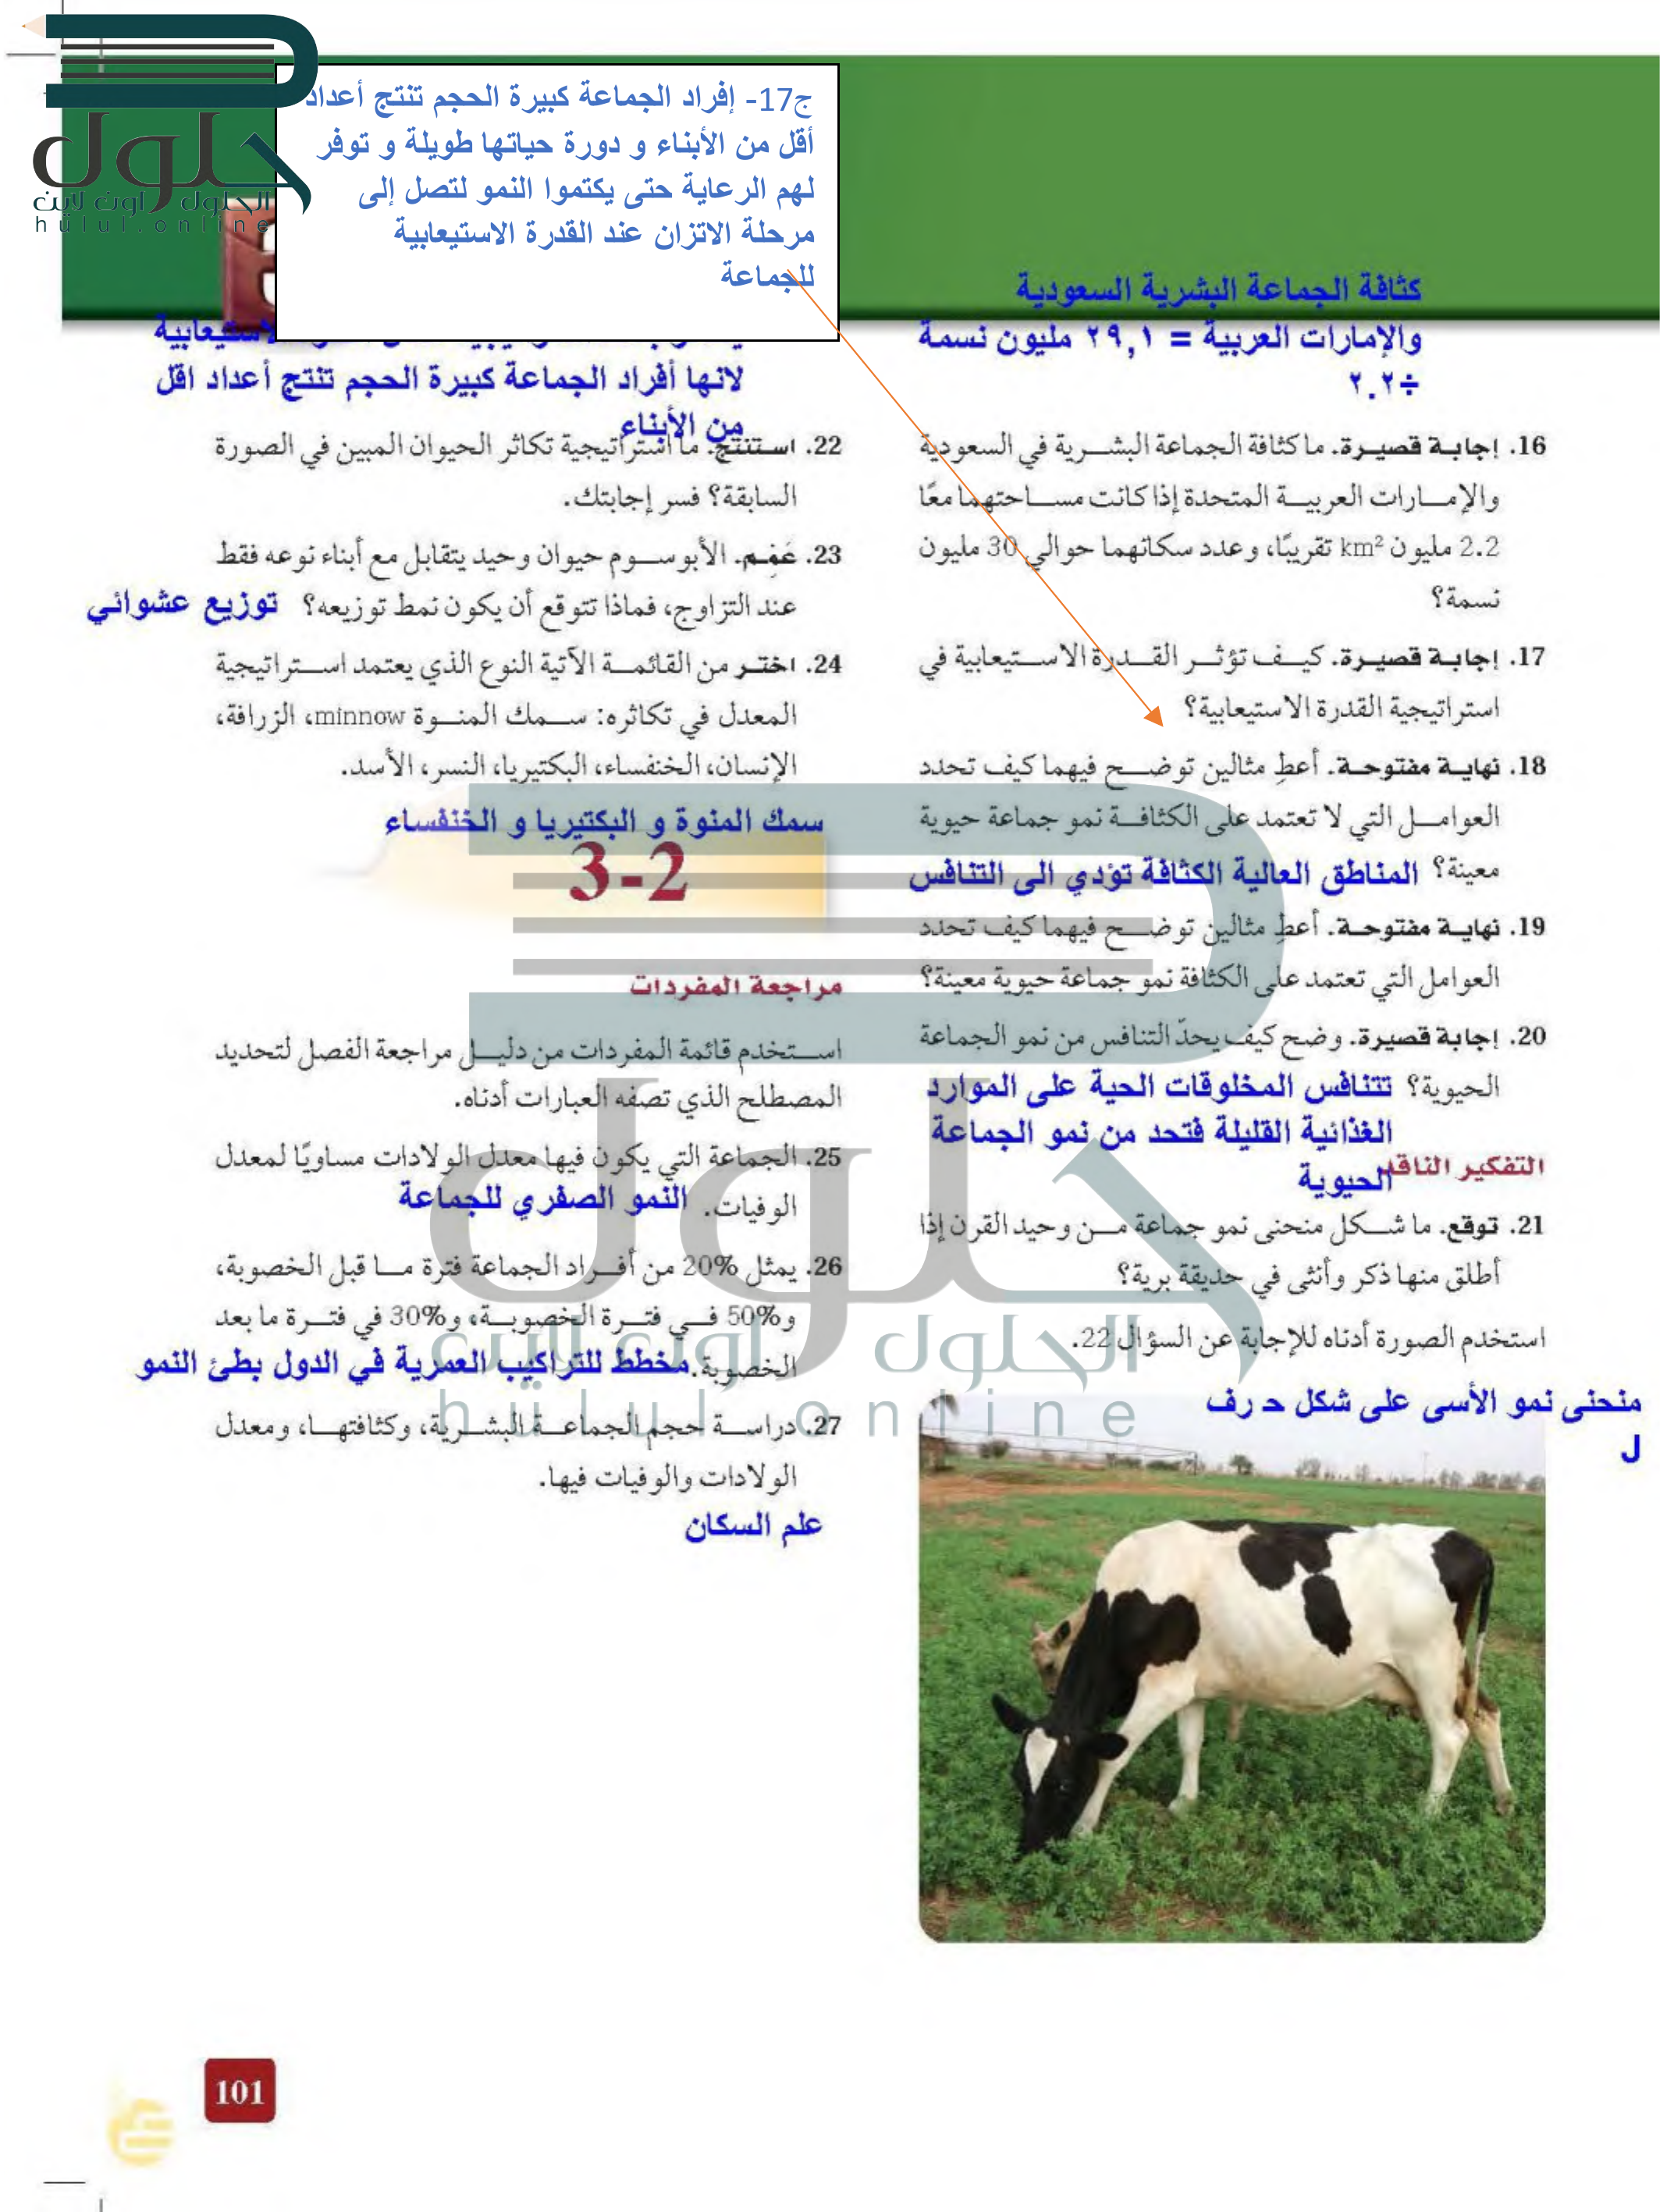 حلول
الحلول اون لاين
hulul.online
ج17- إفراد الجماعة كبيرة الحجم تنتج أعداد
أقل من الأبناء و دورة حياتها طويلة و توفر
لهم الرعاية حتى يكتموا النمو لتصل إلى
مرحلة الاتزان عند القدرة الاستيعابية
للجماعة
كثافة الجماعة البشرية السعودية
والإمارات العربية = ٢٩,١ مليون نسمة
÷٢.٢
16. إجابة قصيرة. ما كثافة الجماعة البشرية في السعودية
والإمارات العربية المتحدة إذا كانت مساحتهما معًا
2.2 مليون km² تقريبًا، وعدد سكانهما حوالي 30 مليون
نسمة؟
17. إجابة قصيرة. كيف تؤثر القدرة الاستيعابية في
استراتيجية القدرة الاستيعابية؟
18. نهاية مفتوحة. أعطِ مثالين توضح فيهما كيف تحدد
العوامل التي لا تعتمد على الكثافة نمو جماعة حيوية
معينة؟ المناطق العالية الكثافة تؤدي الى التنافس
19. نهاية مفتوحة. أعطِ مثالين توضح فيهما كيف تحدد
العوامل التي تعتمد على الكثافة نمو جماعة حيوية معينة؟
20. إجابة قصيرة. وضح كيف يحدّ التنافس من نمو الجماعة
الحيوية؟ تتنافس المخلوقات الحية على الموارد
الغذائية القليلة فتحد من نمو الجماعة
الحيوية
التفكير الناقد
21. توقع. ما شكل منحنى نمو جماعة من وحيد القرن إذا
أطلق منها ذكر وأنثى في حديقة برية؟
استخدم الصورة أدناه للإجابة عن السؤال 22.
منحنى نمو الأسى على شكل حرف
ل
لانها أفراد الجماعة كبيرة الحجم تنتج أعداد اقل
من الأبناء
22. استنتج. ما استراتيجية تكاثر الحيوان المبين في الصورة
السابقة؟ فسر إجابتك.
23. عَمِّم. الأبوسوم حيوان وحيد يتقابل مع أبناء نوعه فقط
عند التزاوج، فماذا تتوقع أن يكون نمط توزيعه؟ توزيع عشوائي
24. اختر من القائمة الآتية النوع الذي يعتمد استراتيجية
المعدل في تكاثره: سمك المنوة minnow، الزرافة،
الإنسان، الخنفساء، البكتيريا، النسر، الأسد.
سمك المنوة و البكتيريا و الخنفساء
3-2
مراجعة المفردات
استخدم قائمة المفردات من دليل مراجعة الفصل لتحديد
المصطلح الذي تصفه العبارات أدناه.
25. الجماعة التي يكون فيها معدل الولادات مساويًا لمعدل
الوفيات. النمو الصفري للجماعة
26. يمثل 20% من أفراد الجماعة فترة ما قبل الخصوبة،
و50% في فترة الخصوبة، و30% في فترة ما بعد
الخصوبة. مخطط للتراكيب العمرية في الدول بطئ النمو
27. دراسة حجم الجماعة البشرية، وكثافتها، ومعدل
الولادات والوفيات فيها.
علم السكان
حلول
الحلول اون لاين
hulul.online
101